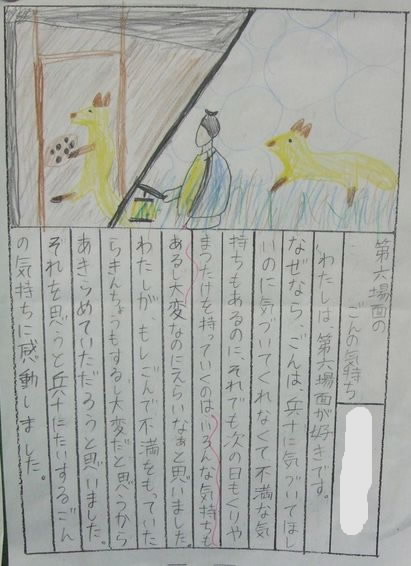 第六場面の
ごんの気持ち
わたしは、第六場面が好きです。
なぜなら、ごんは兵十に気づいてほし
いのに気づいてくれなくて不満な気
持ちもあるのに、それでも次の日もくりや
まつたけを持っていくのは、いろんな気持ちも
あるし大変なのにえらいなぁと思いました。
わたしが、もしごんで不満をもっていた
らきんちょうもするし大変だと思うから
あきらめていただろうと思いました。
それを思うと兵十にたいするごん
の気持ちに感動しました。